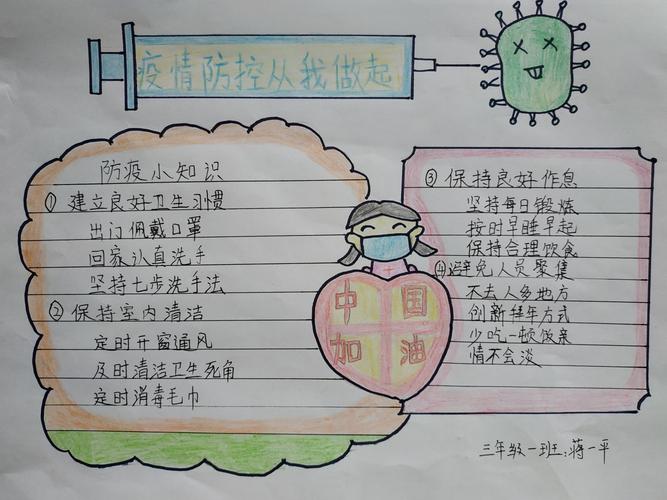 疫情防控从我做起
防疫小知识
① 建立良好卫生习惯
出门佩戴口罩
回家认真洗手
坚持七步洗手法
② 保持室内清洁
定时开窗通风
及时清洁卫生死角
定时消毒毛巾
中国
加油
③ 保持良好作息
坚持每日锻炼
按时早睡早起
保持合理饮食
④ 避免人员聚集
不去人多地方
创新拜年方式
少吃一顿饭亲
情不会淡
三年级一班:蒋一平